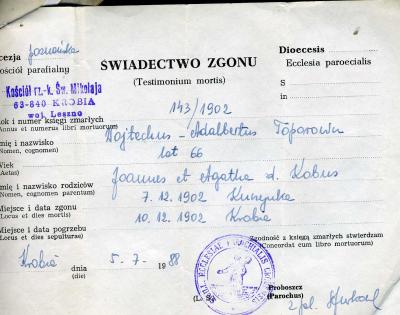 cezja Poznańska
Dioecesis
ościół parafialny
ŚWIADECTWO ZGONU
Ecclesia paroecialis
(Testimonium mortis)
S
Kościół rz.-k. Św. Mikołaja
63-840 KROBIA
woj. Leszno
in
ok i numer księgi zmarłych
143/1902
Annus et numerus libri mortuorum
mię i nazwisko
Wojtechus - Adalbertus
(Nomen, cognomen)
Wiek
lat 66
(Aetas)
mię i nazwisko rodziców
Joannes et Agatha d. Kobus
(Nomen, cognomen parentum)
Miejsce i data zgonu
7.12.1902
(Locus et dies mortis)
Miejsce i data pogrzebu
10.12.1902 Krobia
(Locus et dies sepulturae)
Zgodność z księgą zmarłych stwierdzam
(Concordat cum libro mortuorum)
Krobia dnia 5-7- 1988
(die)
Proboszcz
(L. S.)
(Parochus)